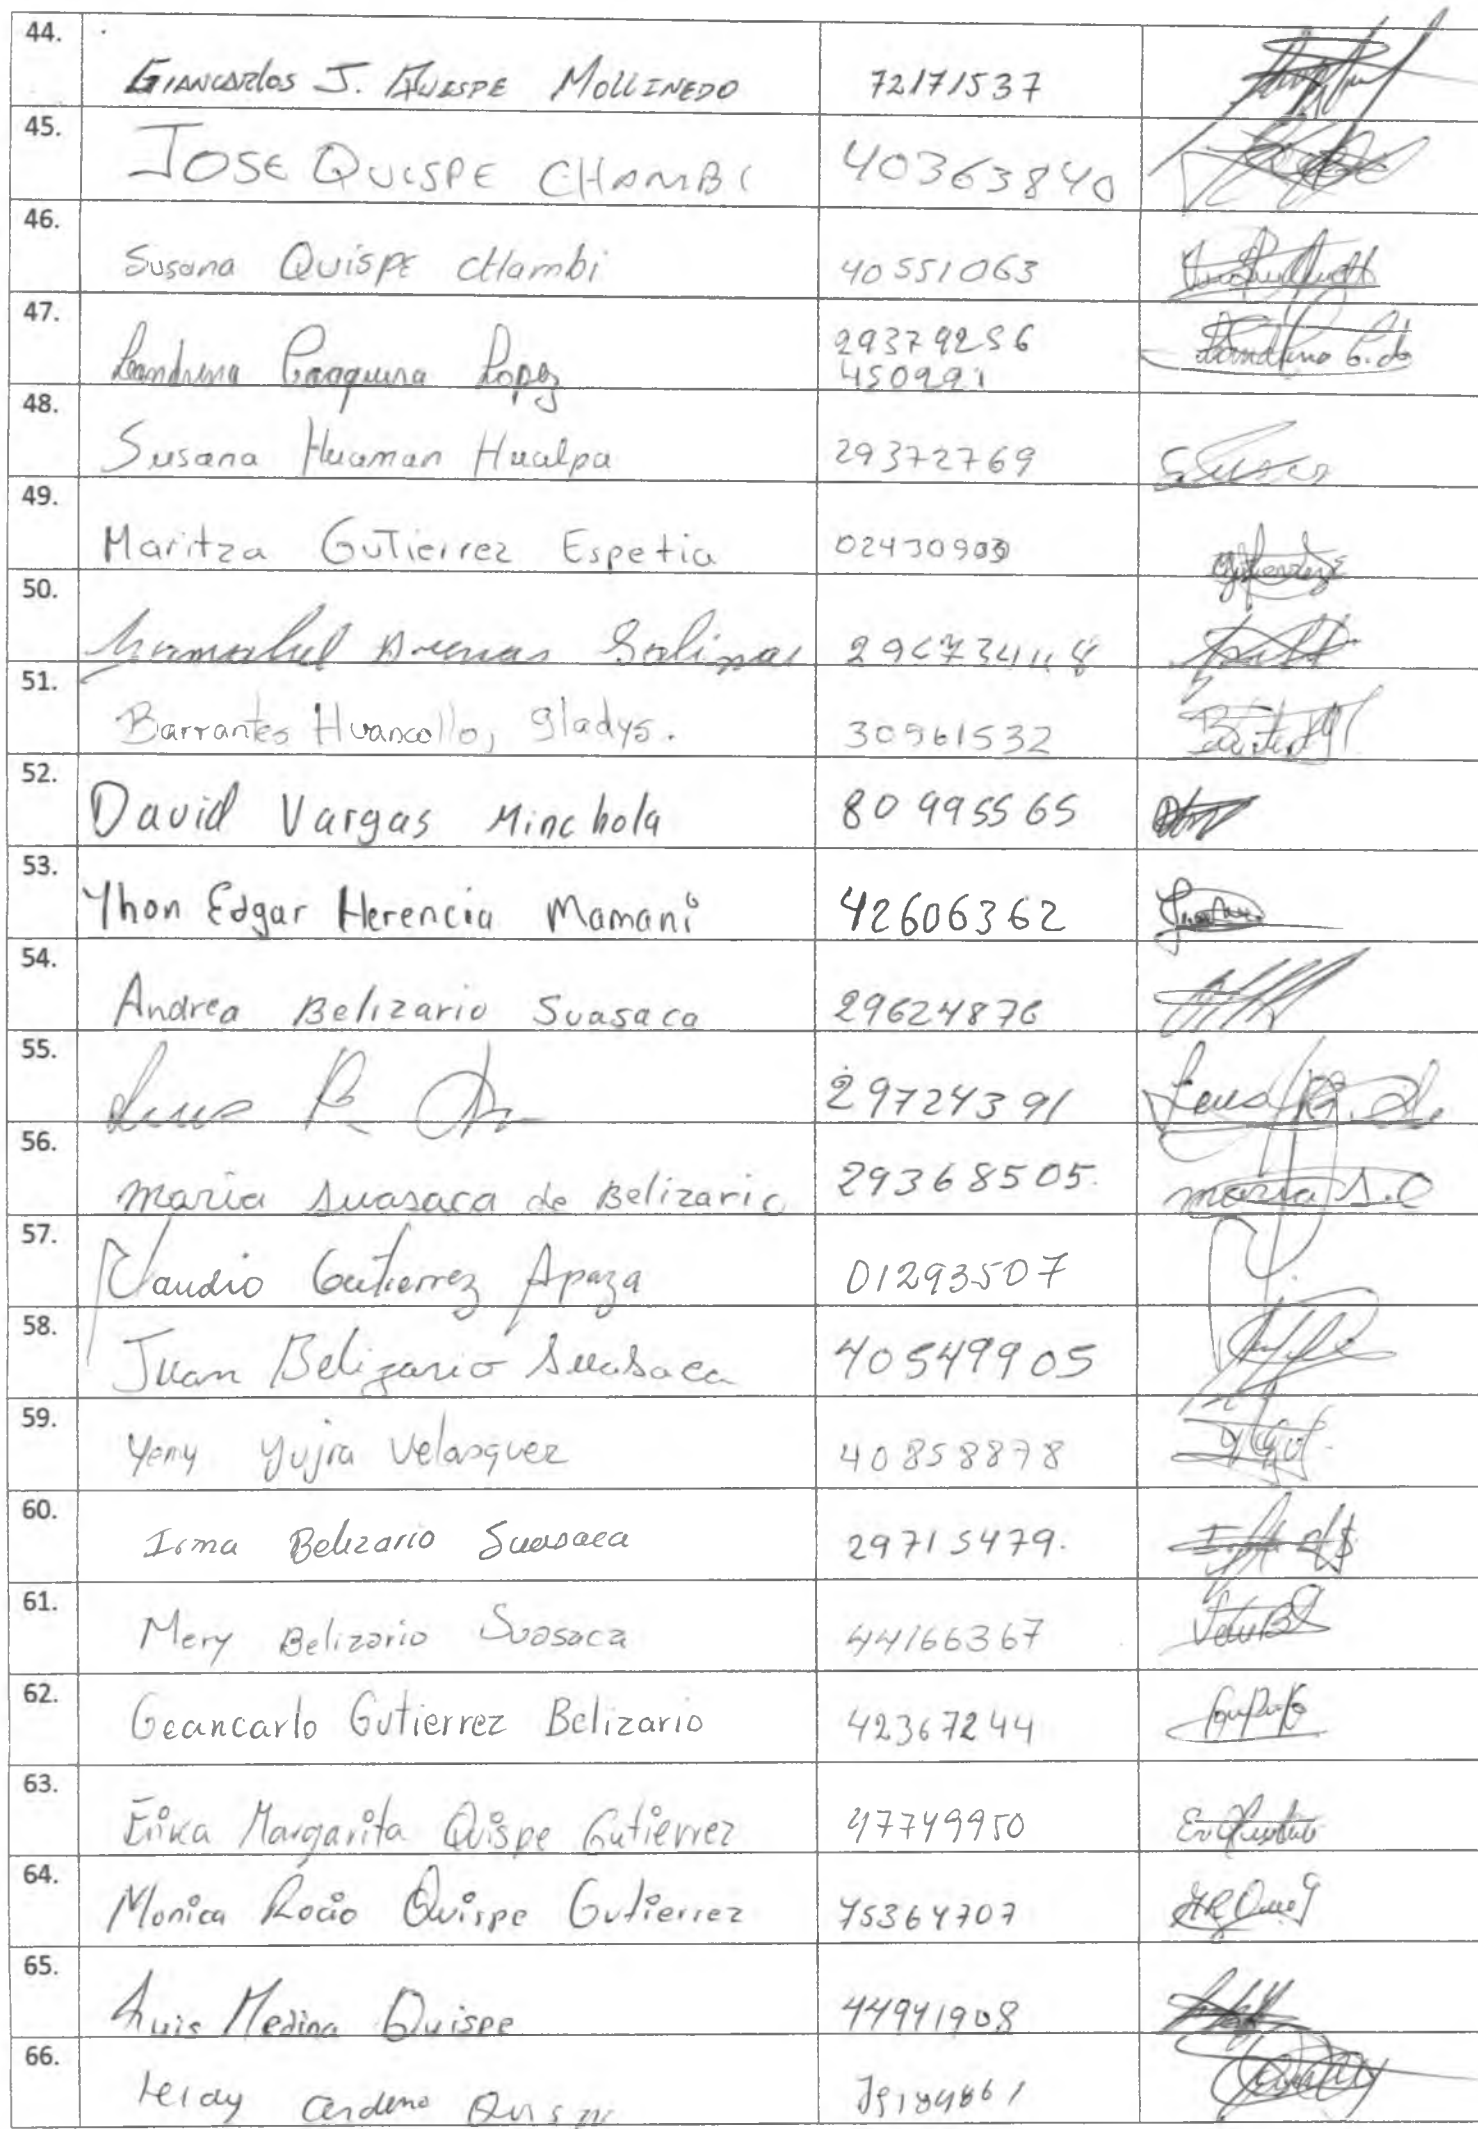 44. GIANCARLOS J. QUISPE MOLLINEDO 72171537
45. JOSE QUISPE CHAMBI 40363840
46. Susana QUISPE CHambi 40551063
47. Leandrina Lopez 29379256
48. Susana Huaman Hualpa 29372769
49. Maritza GuTierrez Espetia 02430903
50. Arenas Salinas
51. Barrantes Huancollo, Gladys. 30961532
52. David Vargas Minchola 80995565
53. Yhon Edgar Herencia Mamani 42606362
54. Andrea Belizario Suasaca 29624876
55. Luis 29724391
56. maria suasaca de Belizario 29368505. maria S.
57. Claudio Gutierrez Apaza 01293507
58. Juan Belizario Suasaca 40549905
59. Yeny Yujra Velasquez 40858878
60. Irma Belizario Suasaca 29715479.
61. Mery Belizario Suasaca 44166367
62. Geancarlo Gutierrez Belizario 42367244
63. Erika Margarita Quispe Gutierrez 47749950
64. Monica Rocio Quispe Gutierrez 75364707
65. Luis Medina Quispe 44941908
66.